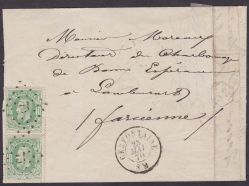 Monsieur Moreau
Directeur du Charbonnage
de Bonne Espérance
à Lambusart
(farcienne)
CERFONTAINE